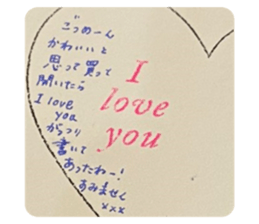 ごっめーん
かわいいと
思って買って
開いてたら
I love
you
がっつり
書いて
あったわー!
すみません
xxx
I
love
you